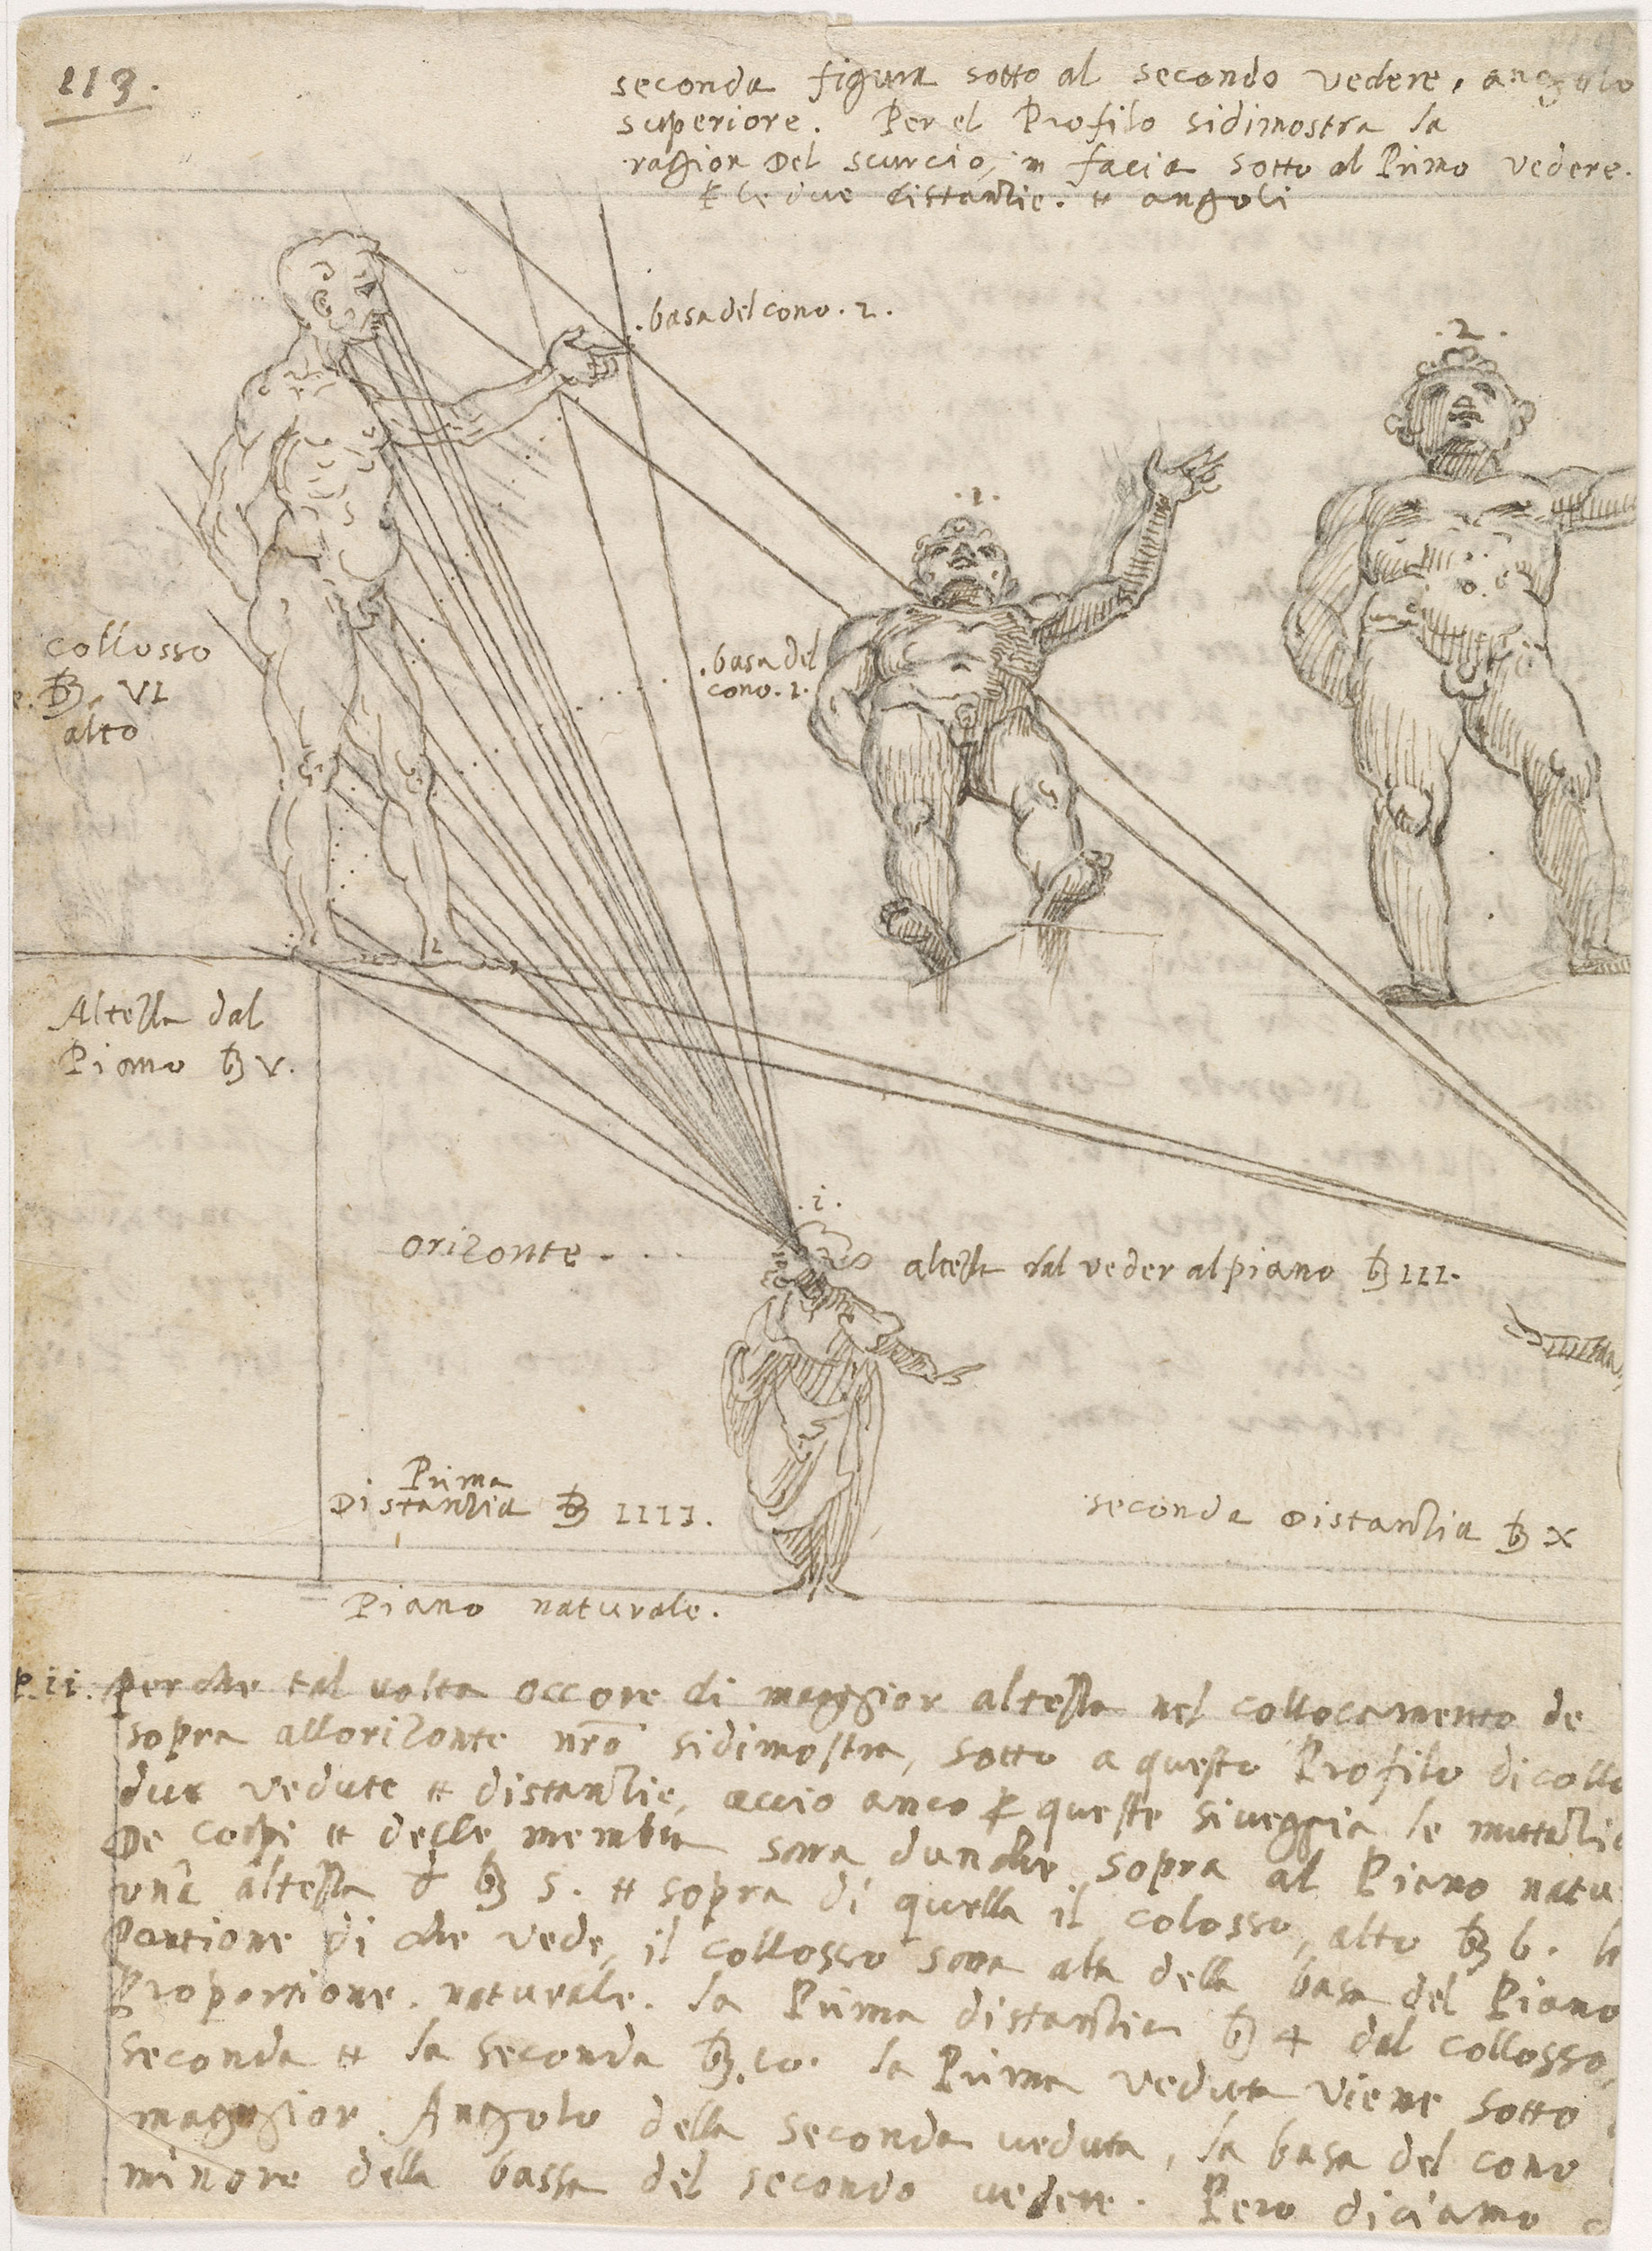 113.
seconda figura sotto al secondo vedere, angolo
superiore. Per el Profilo si dimostra la
ragion Del scurcio, in facia sotto al Primo vedere.
le due distantie. et angoli
.basa del cono. 2.
.2.
.1.
collosso
VI
alto
.basa del
cono. 1.
Altezza dal
Piano V.
.i.
orizonte.
altezza dal veder al piano III.
Prima
Distantia IIII.
seconda Distantia X
Piano naturale.
ii. perche tal uolta occore di maggior altezza nel collocamento de
sopra all orizonte nro si dimostra, sotto a questo Profilo di coll
due vedute et distantie, accio anco queste si ueggia le mutati
De corpi et delle membra sara dunche sopra al Piano natu
una altezza 5. et sopra di quella il colosso, alto 6. la
Portione di che vede, il collosso sara alta della basa del Piano
Proportione. naturale. la Prima distantia 4 dal collosso,
seconda et la seconda 10. la Prima veduta viene sotto
maggior Angolo della seconda ueduta, la basa del cono
minore della bassa del secondo uedere. Pero diciamo